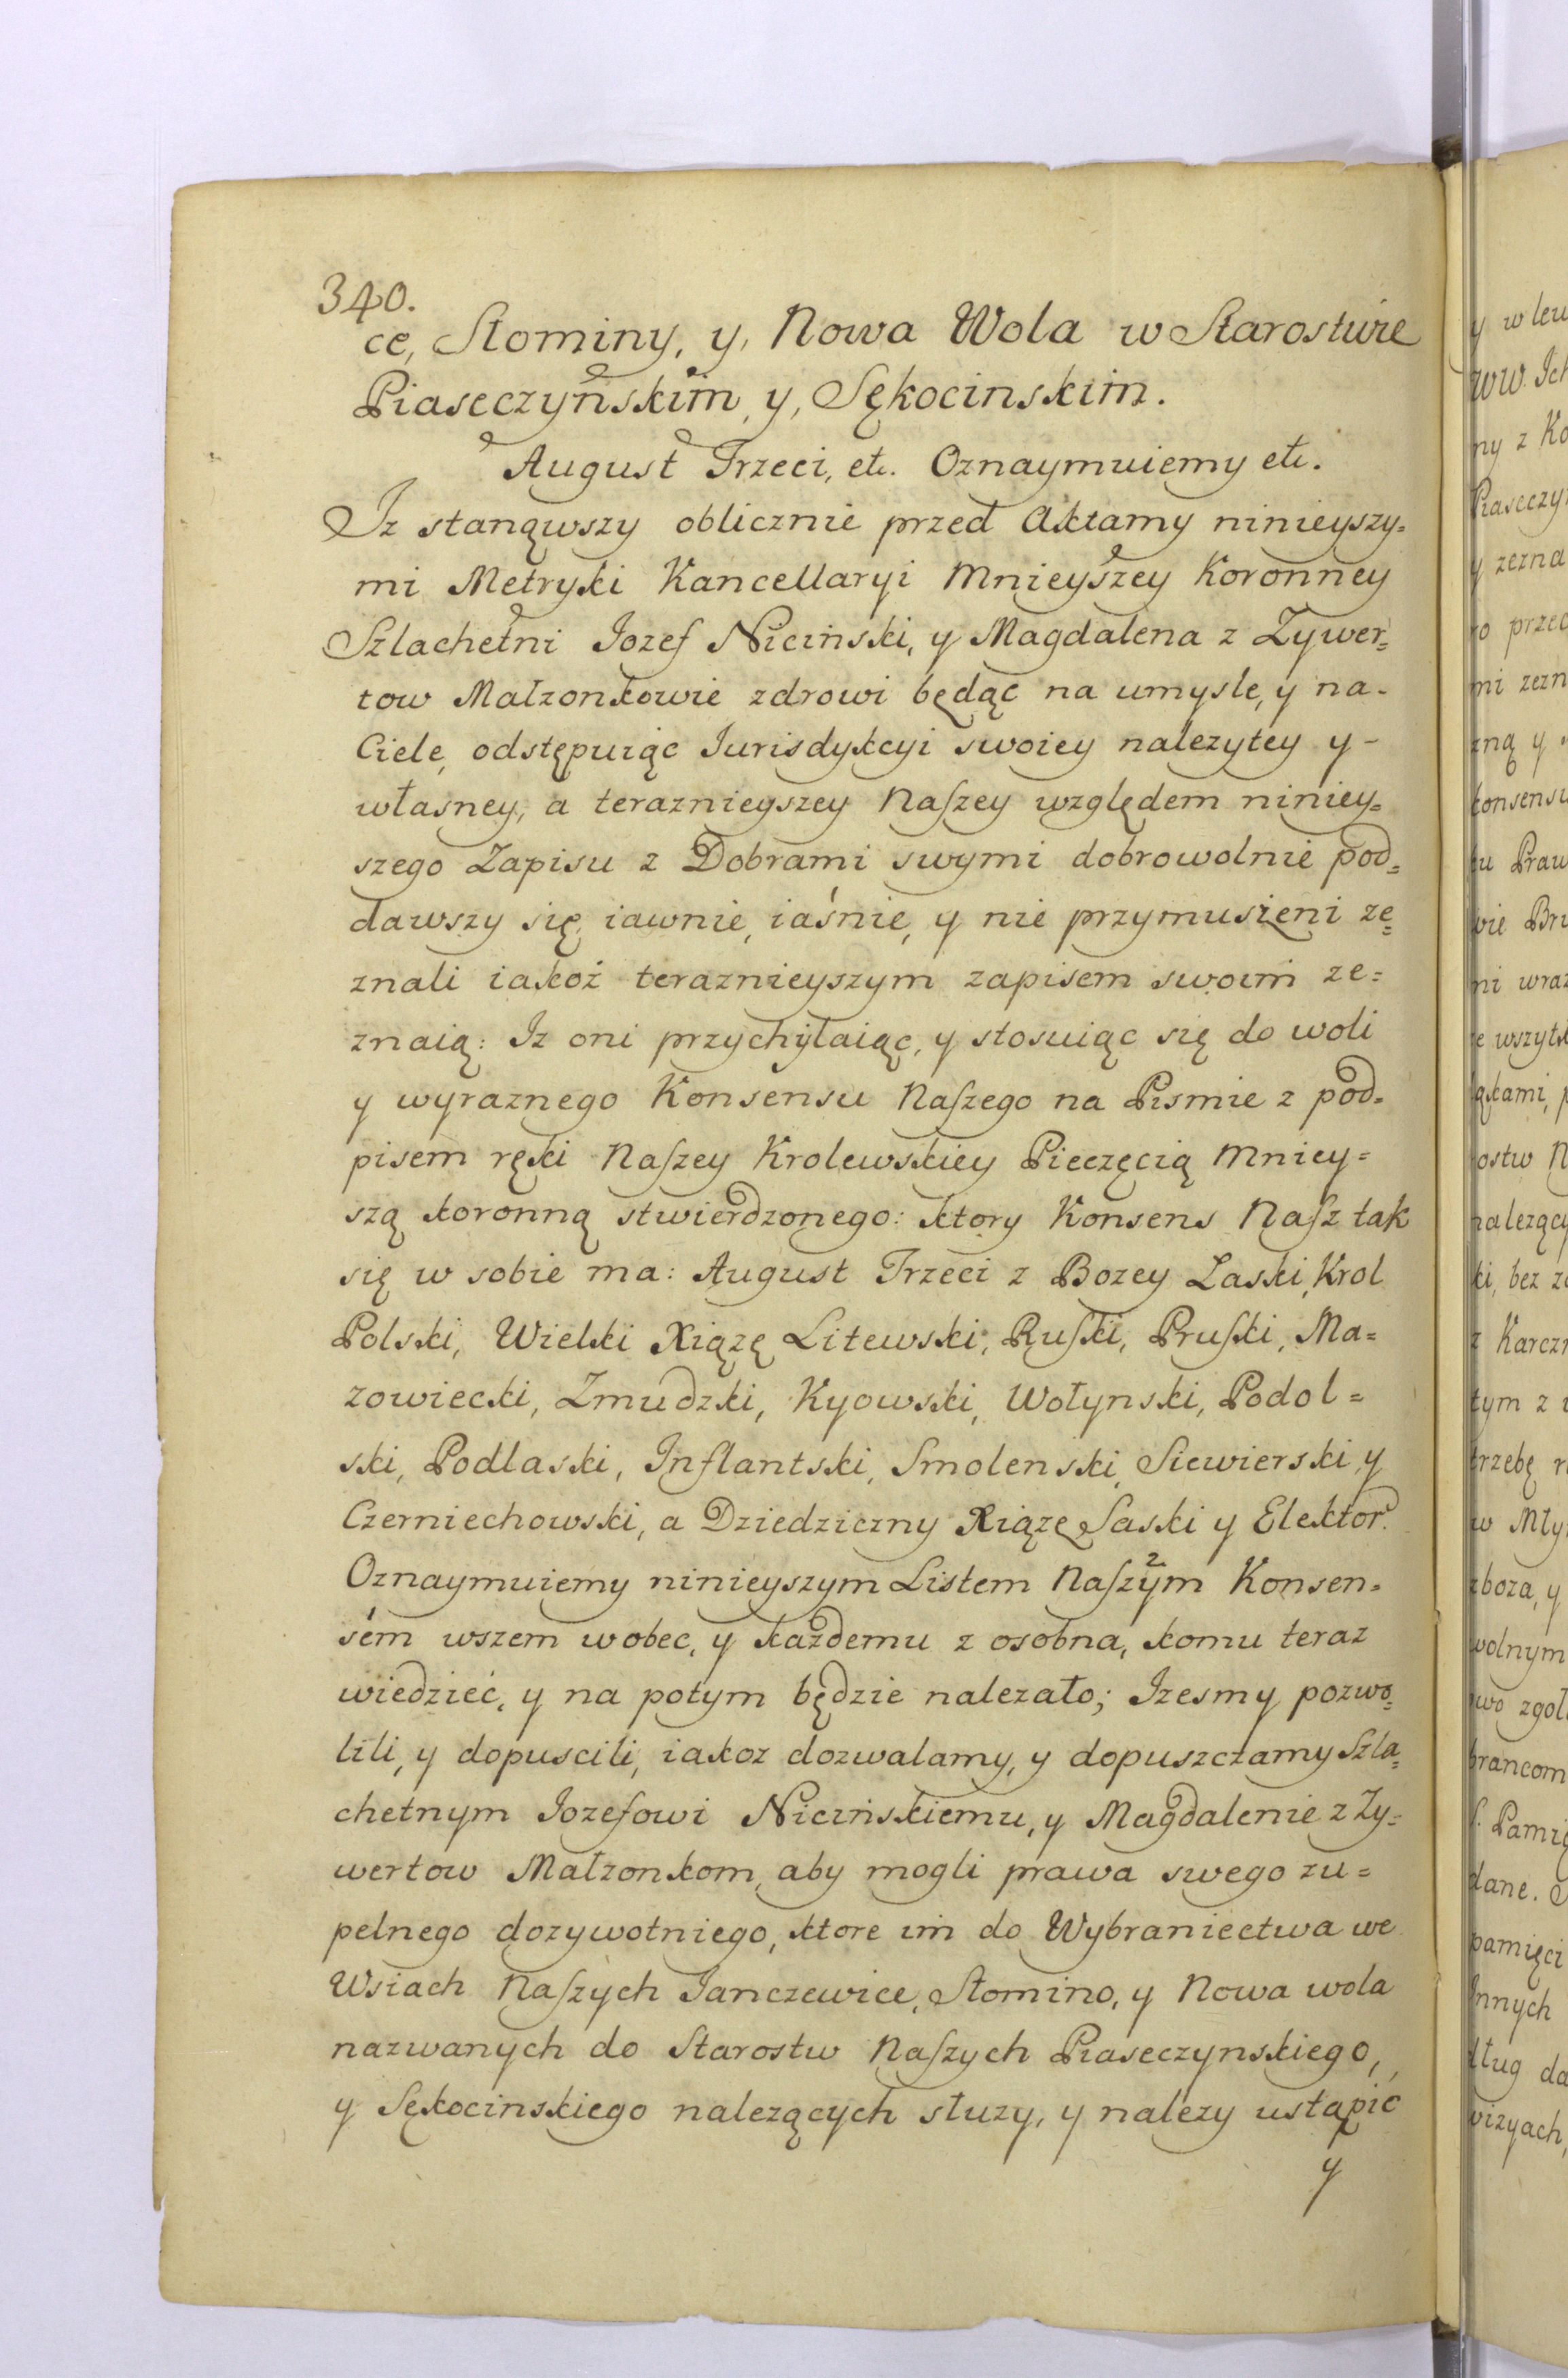 340.
ce, Słominy, y, Nowa Wola w Starostwie
Piaseczyńskim, y, Sękocinskim.
August Trzeci, etc. Oznaymuiemy etc.
Iz stanąwszy oblicznie przed Aktamy ninieyszy=
mi Metryki Kancellaryi Mnieyszey Koronney
Szlachetni Iozef Niciński, y Magdalena z Zywer=
tow Małzonkowie zdrowi będąc na umysle, y na-
Ciele, odstępuiąc Iurisdykcyi swoiey nalezytey y-
własney, a teraznieyszey Naszey względem niniey=
szego Zapisu z Dobrami swymi dobrowolnie pod=
dawszy się, iawnie, iaśnie, y nie przymuszeni ze=
znali iakoż teraznieyszym zapisem swoim ze=
znaią: Iz oni przychylaiąc, y stosuiąc się do woli
y wyraznego Konsensu Naszego na Pismie z pod=
pisem ręki Naszey Krolewskiey Pieczęcią Mniey=
szą koronną stwierdzonego: ktory Konsens Nasz tak
się w sobie ma: August Trzeci z Bozey Laski, Krol
Polski, Wielki Xiązę Litewski, Ruski, Pruski, Ma=
zowiecki, Zmudzki, Kyowski, Wołynski, Podol=
ski, Podlaski, Inflantski, Smolenski, Siewierski, y
Czerniechowski, a Dziedziczny Xiązę Saski y Elektor.
Oznaymuiemy ninieyszym Listem Naszym Konsen=
sem wszem wobec, y każdemu z osobna, komu teraz
wiedzieć, y na potym będzie nalezało; Izesmy pozwo=
lili, y dopuscili, iakoz dozwalamy, y dopuszczamy Szla=
chetnym Iozefowi Nicińskiemu, y Magdalenie z Zy=
wertow Małzonkom, aby mogli prawa swego zu=
pelnego dozywotniego, ktore im do Wybraniectwa we
Wsiach Naszych Ianczewice, Słomino, y Nowa wola
nazwanych do Starostw Naszych Piaseczynskiego,
y Sękocinskiego nalezących słuzy, y nalezy ustąpić
y